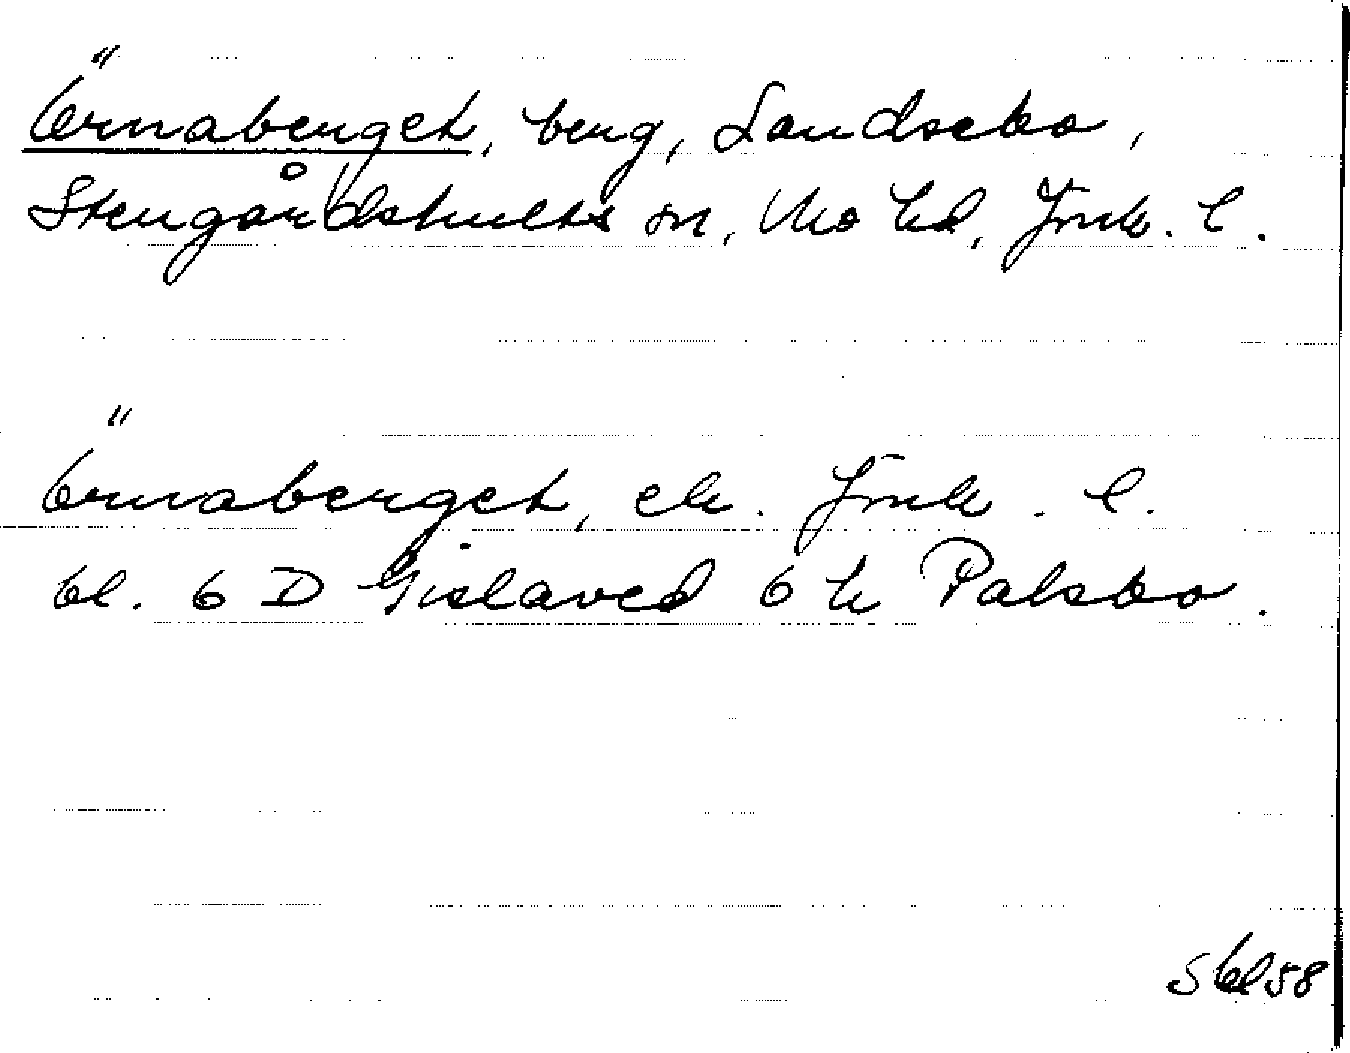 Örnaberget, berg, Landsebo,
Stengårdshults sn, Mo hd, Jmk. l.
Örnaberget, ek. Jmk. l.
bl. 6 D Gislaved 6 h Palsbo.